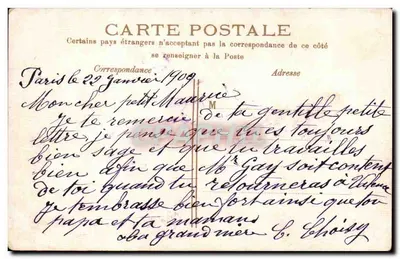 CARTE POSTALE
Certains pays étrangers n'acceptant pas la correspondance de ce côté
se renseigner à la Poste
Correspondance
Adresse
Paris le 22 janvier 1909
M
Mon cher petit Maurice
Je te remercie de ta gentille petite
lettre je pense que tu es toujours
bien sage et que tu travailles
bien afin que Mr Gay soit content
de toi quand tu retourneras à
Je t'embrasse bien fort ainsi que ton
papa et ta maman
ta grand mère C. Choisy